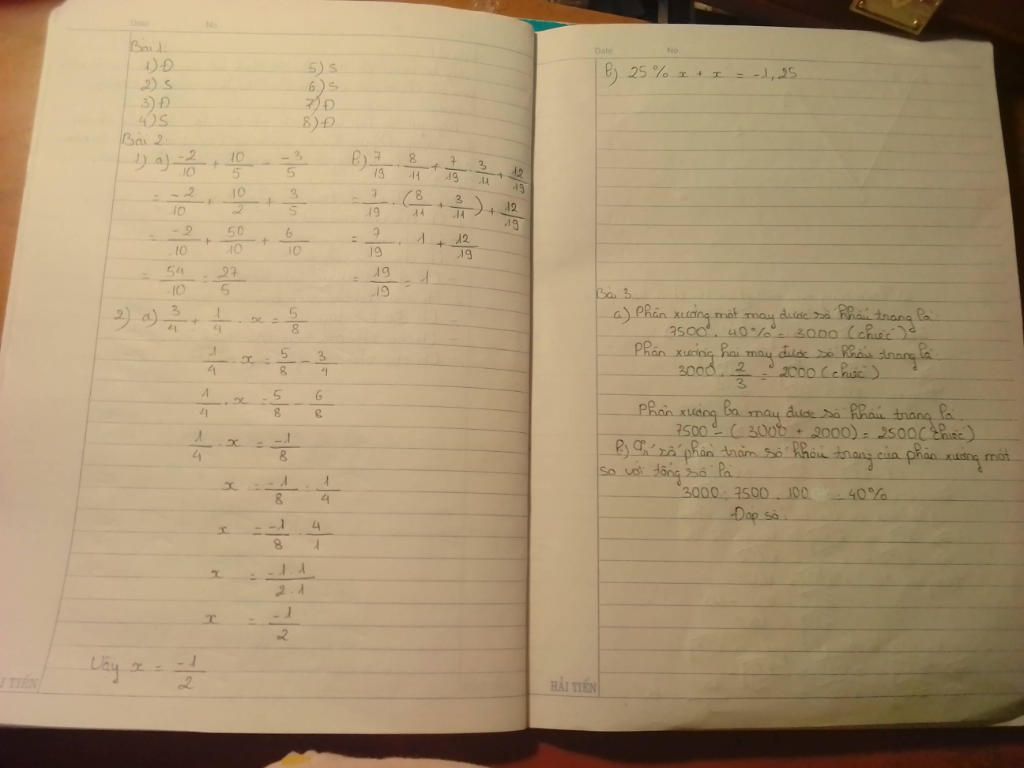 Date No
Bài 1:
1) Đ 5) S
2) S 6) S
3) Đ 7) Đ
4) S 8) Đ
Bài 2:
1) a) -2/10 + 10/5 - -3/5
= -2/10 + 10/2 + 3/5
= -2/10 + 50/10 + 6/10
= 54/10 = 27/5
b) 7/19 . 8/11 + 7/19 . 3/11 + 12/19
= 7/19 . (8/11 + 3/11) + 12/19
= 7/19 . 1 + 12/19
= 19/19 = 1
2) a) 3/4 + 1/4 . x = 5/8
1/4 . x = 5/8 - 3/4
1/4 . x = 5/8 - 6/8
1/4 . x = -1/8
x = -1/8 : 1/4
x = -1/8 . 4/1
x = -1.1/2.1
x = -1/2
Vậy x = -1/2
I TIẾN
Date No
b) 25% x + x = -1,25
Bài 3
a) Phân xưởng một may được số khẩu trang là:
7500 . 40% = 3000 (chiếc)
Phân xưởng hai may được số khẩu trang là:
3000 . 2/3 = 2000 (chiếc)
Phân xưởng ba may được số khẩu trang là:
7500 - (3000 + 2000) = 2500 (chiếc)
b) Tỉ số phần trăm số khẩu trang của phân xưởng một
so với tổng số là
3000 : 7500 . 100 = 40%
Đáp số:
HẢI TIẾN